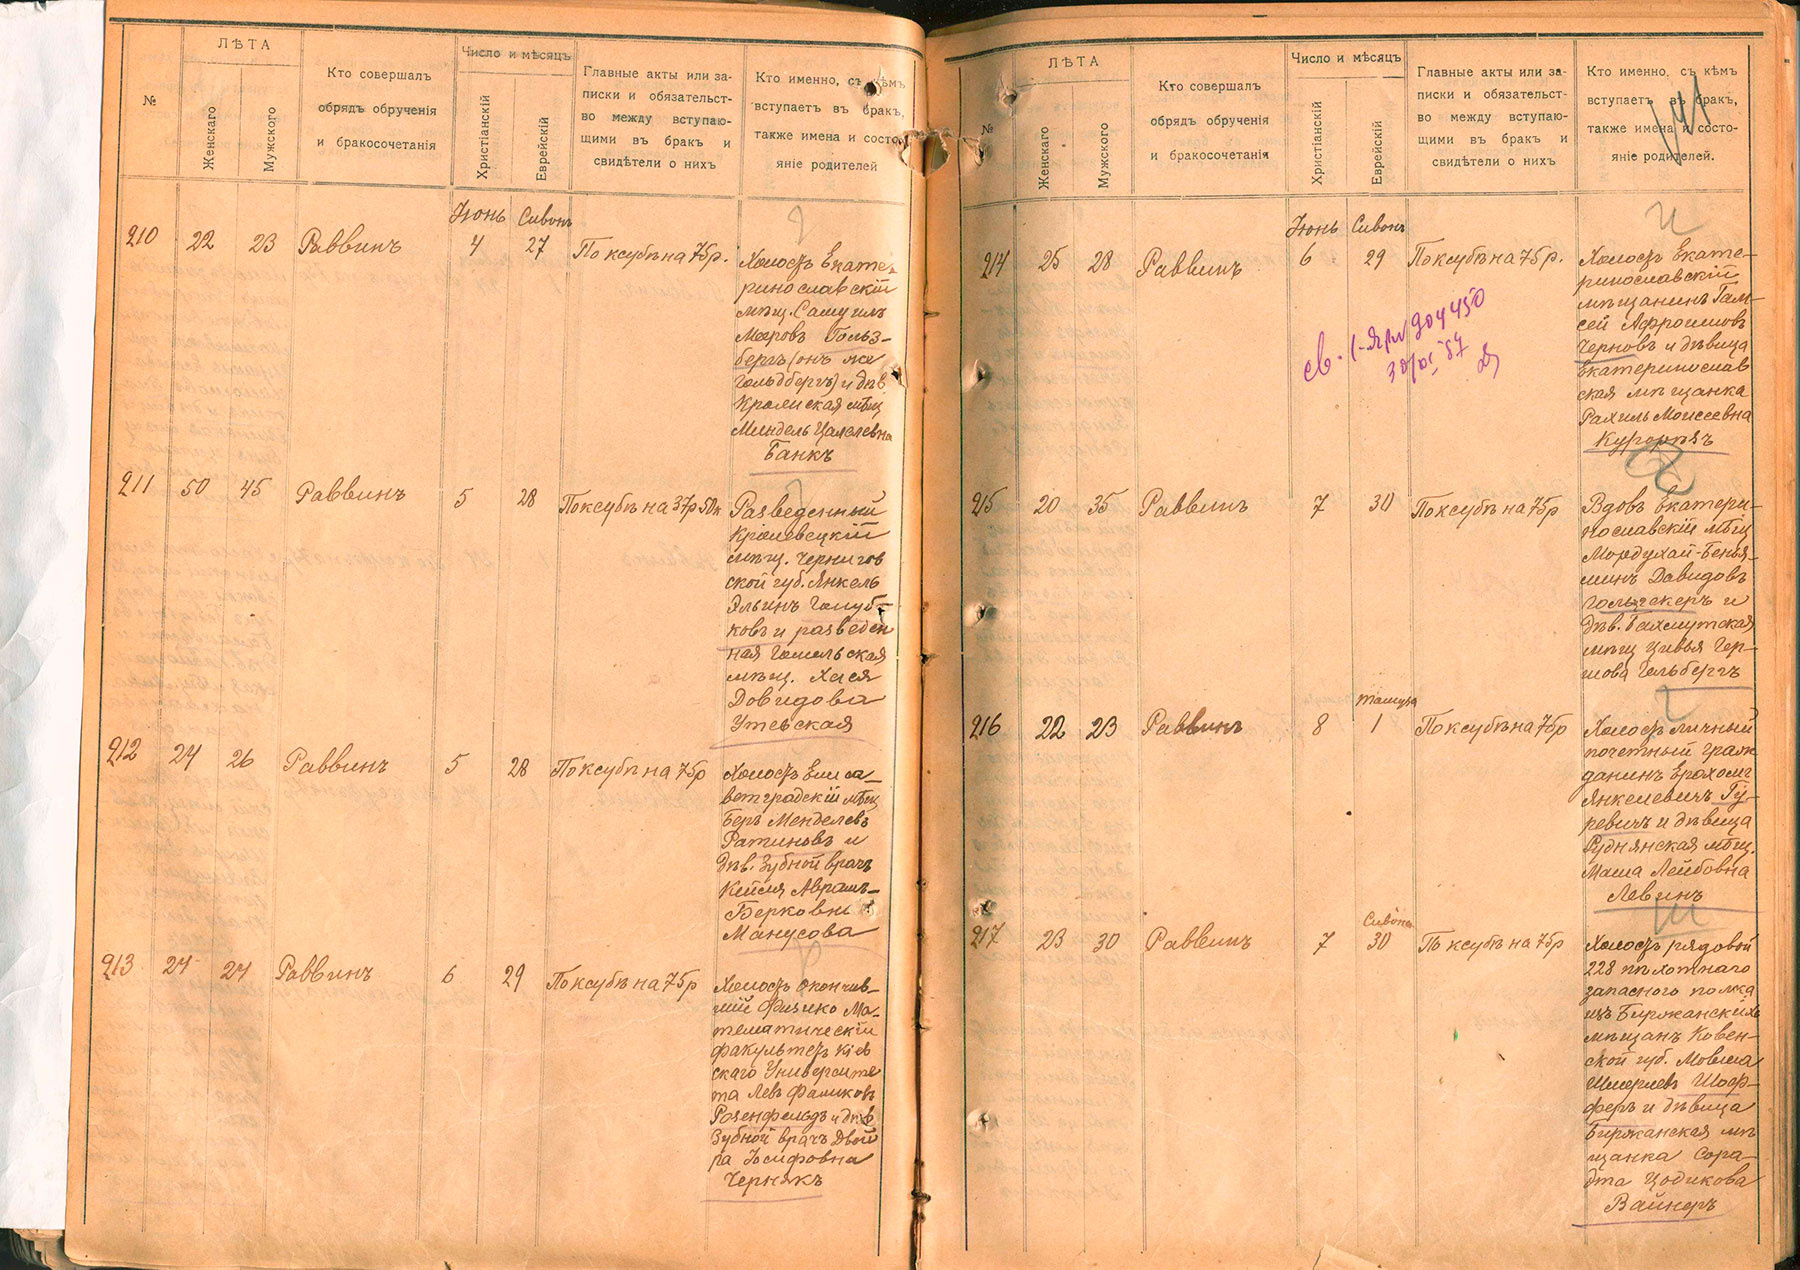 №
ЛѢТА
Женскаго
Мужского
Кто совершалъ
обрядъ обрученія
и бракосочетанія
Число и мѣсяцъ
Христіанскій
Еврейскій
Главные акты или за-
писки и обязательст-
во между вступаю-
щими въ бракъ и
свидѣтели о нихъ
Кто именно, съ кѣмъ
вступаетъ въ бракъ,
также имена и состо-
яніе родителей
Іюнь Сивонъ
210 22 23 Раввинъ 4 27 По ксубѣ на 75 р.
Холостъ Екате-
ринославскій
мѣщ. Самуилъ
Мееровъ Гольз-
бергъ (онъ же
Гольдбергъ) и дѣв
мѣщ
Миндель Цалелевна
Банкъ
211 50 45 Раввинъ 5 28 По ксубѣ на 37 р 50 к
Разведенный
Кролевецкій
мѣщ. Чернигов
ской губ. Янкель
Эльинъ Голуб-
ковъ и разведен
ная Гомельская
мѣщ. Хася
Довидова
Утевская
212 24 26 Раввинъ 5 28 По ксубѣ на 75 р
Холостъ Елиса-
ветградскій мѣщ
Беръ Менделевъ
Ратиновъ и
дѣв. Зубной врачъ
Авраамъ-
Берковна
Манусова
213 24 24 Раввинъ 6 29 По ксубѣ на 75 р
Холостъ окончив-
шій Физико Ма-
тематическій
факультетъ Кіев
скаго Университе
та Левъ Фаликовъ
Розенфельдъ и дѣв
Зубной врачъ Двой
ра Іосифовна
Чернякъ
№
ЛѢТА
Женскаго
Мужского
Кто совершалъ
обрядъ обрученія
и бракосочетанія
Число и мѣсяцъ
Христіанскій
Еврейскій
Главные акты или за-
писки и обязательст-
во между вступаю-
щими въ бракъ и
свидѣтели о нихъ
Кто именно, съ кѣмъ
вступаетъ въ бракъ,
также имена и состо-
яніе родителей.
141
Іюнь Сивонъ
214 25 28 Раввинъ 6 29 По ксубѣ на 75 р.
Холостъ Екате-
ринославскій
мѣщанинъ
Афроимовъ
Черновъ и дѣвица
Екатеринослав
ская мѣщанка
Рахиль Моисеевна
215 20 35 Раввинъ 7 30 По ксубѣ на 75 р
Вдовъ Екатери-
нославскій мѣщ
Мордухай-Бенья-
минъ Давидовъ
и
Дѣв. Бахмутская
мѣщ Цивья Гер-
шова Гельбергъ
Тамуза
216 22 23 Раввинъ 8 1 По ксубѣ на 75 р
Холостъ личный
почетный граж
данинъ
Янкелевичъ Гу-
ревичъ и дѣвица
Руднянская мѣщ.
Маша Лейбовна
Левинъ
Сивона
217 23 30 Раввинъ 7 30 По ксубѣ на 75 р
Холостъ рядовой
228 пѣхотнаго
запасного полка
изъ Биржанскихъ
мѣщанъ Ковен-
ской губ. Мовша
Шмерлевъ Шоф-
феръ и дѣвица
Биржанская мѣ
щанка Сора-
Эта Цодикова
Вайнеръ